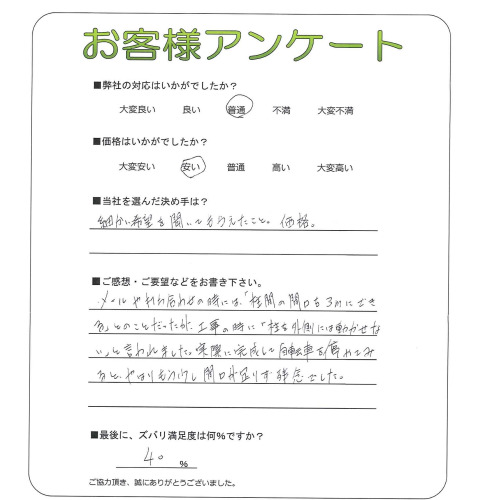 お客様アンケート
■弊社の対応はいかがでしたか？
大変良い 良い 普通 不満 大変不満
■価格はいかがでしたか？
大変安い 安い 普通 高い 大変高い
■当社を選んだ決め手は？
細かい希望を聞いてもらえたこと。価格。
■ご感想・ご要望などをお書き下さい。
メールやお打合わせの時には、「柱間の間口を3mにでき
る」とのことだったが、工事の時に「柱を外側には動かせな
い」と言われました。実際に完成して自転車を停めてみ
ると、やはりもう少し間口が足りず残念でした。
■最後に、ズバリ満足度は何%ですか？
40 %
ご協力頂き、誠にありがとうございました。